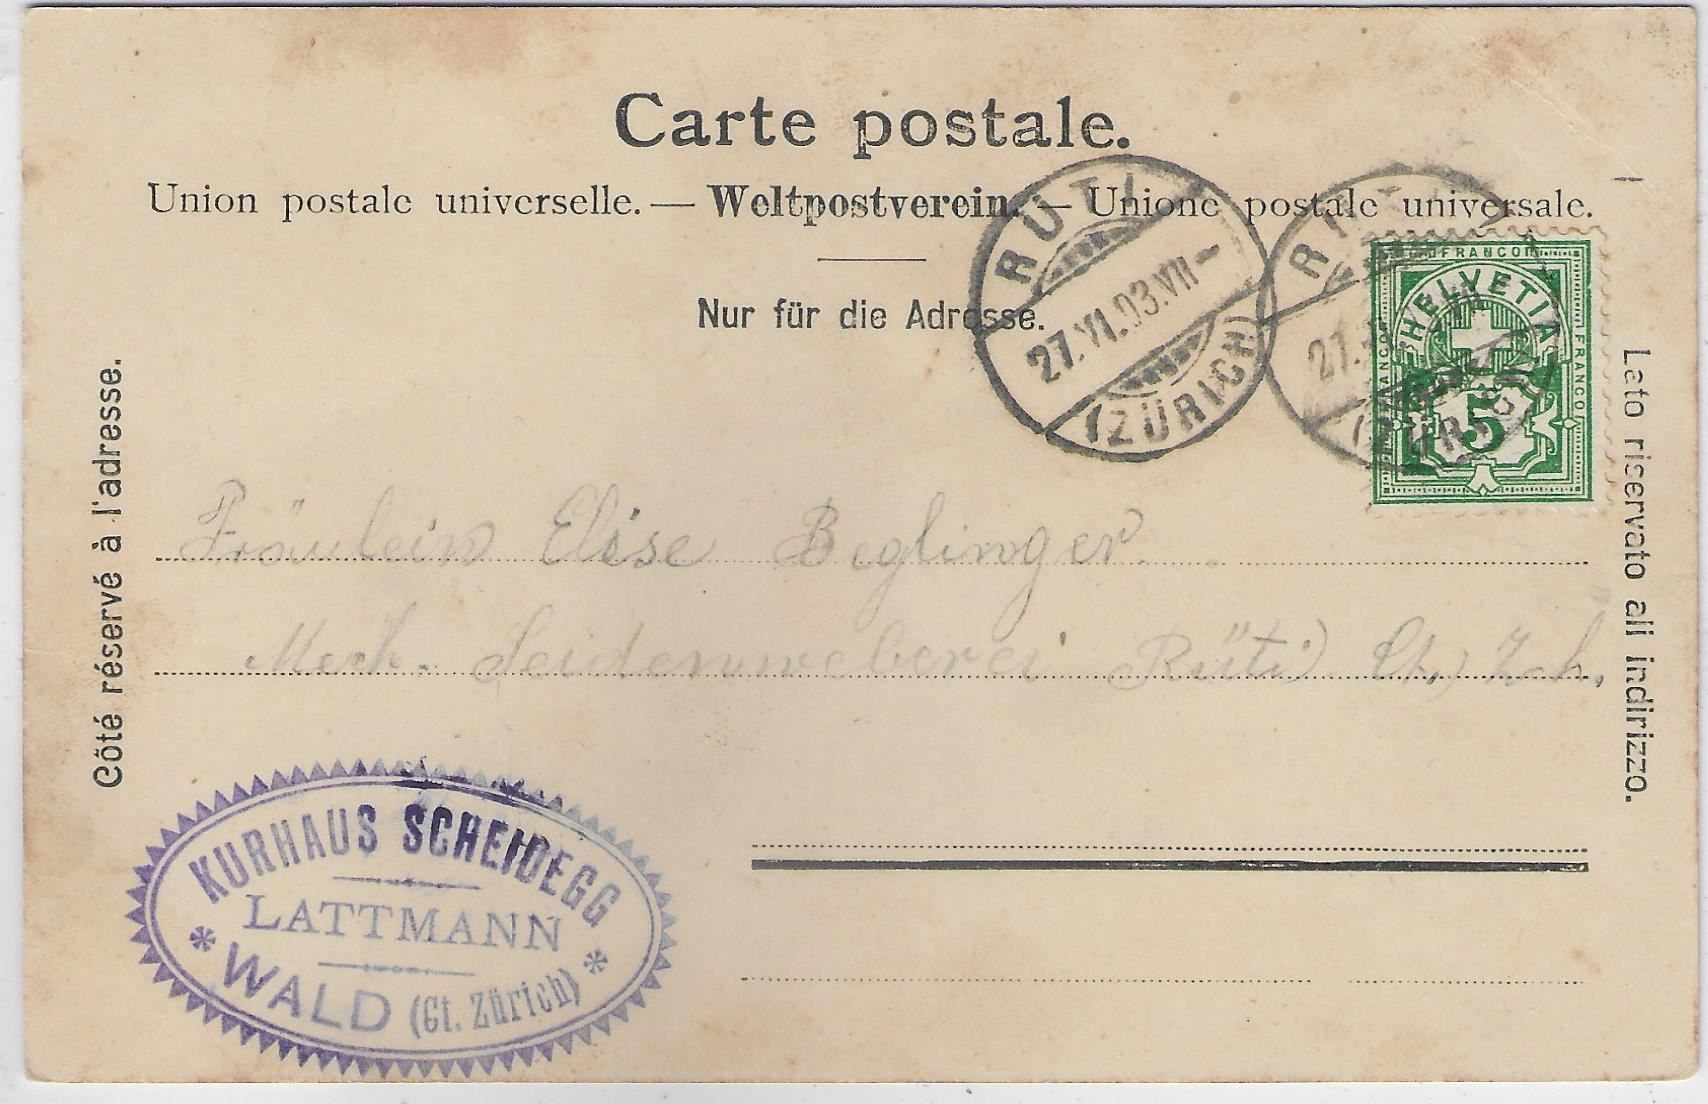 Carte postale.
Union postale universelle. — Weltpostverein. — Unione postale universale.
Nur für die Adresse.
RÜTI
27.VI.03.VII-
(ZÜRICH)
FRANCO
HELVETIA
FRANCO
FRANCO
5
Côté réservé à l'adresse.
Lato riservato all indirizzo.
Fräulein Elise Beglinger.
Mech. Seidenweberei Rüti Ct. Zch.
KURHAUS SCHEIDEGG
LATTMANN
* WALD (Ct. Zürich) *